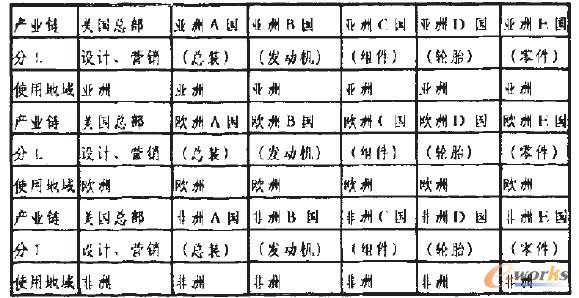 产业链 美国总部 亚洲A国 亚洲B国 亚洲C国 亚洲D国 亚洲E国
分工 设计、营销 (总装) (发动机) (组件) (轮胎) (零件)
使用地域 亚洲 亚洲 亚洲 亚洲 亚洲 亚洲
产业链 美国总部 欧洲A国 欧洲B国 欧洲C国 欧洲D国 欧洲E国
分工 设计、营销 (总装) (发动机) (组件) (轮胎) (零件)
使用地域 欧洲 欧洲 欧洲 欧洲 欧洲 欧洲
产业链 美国总部 非洲A国 非洲B国 非洲C国 非洲D国 非洲E国
分工 设计、营销 (总装) (发动机) (组件) (轮胎) (零件)
使用地域 非洲 非洲 非洲 非洲 非洲 非洲
e-works